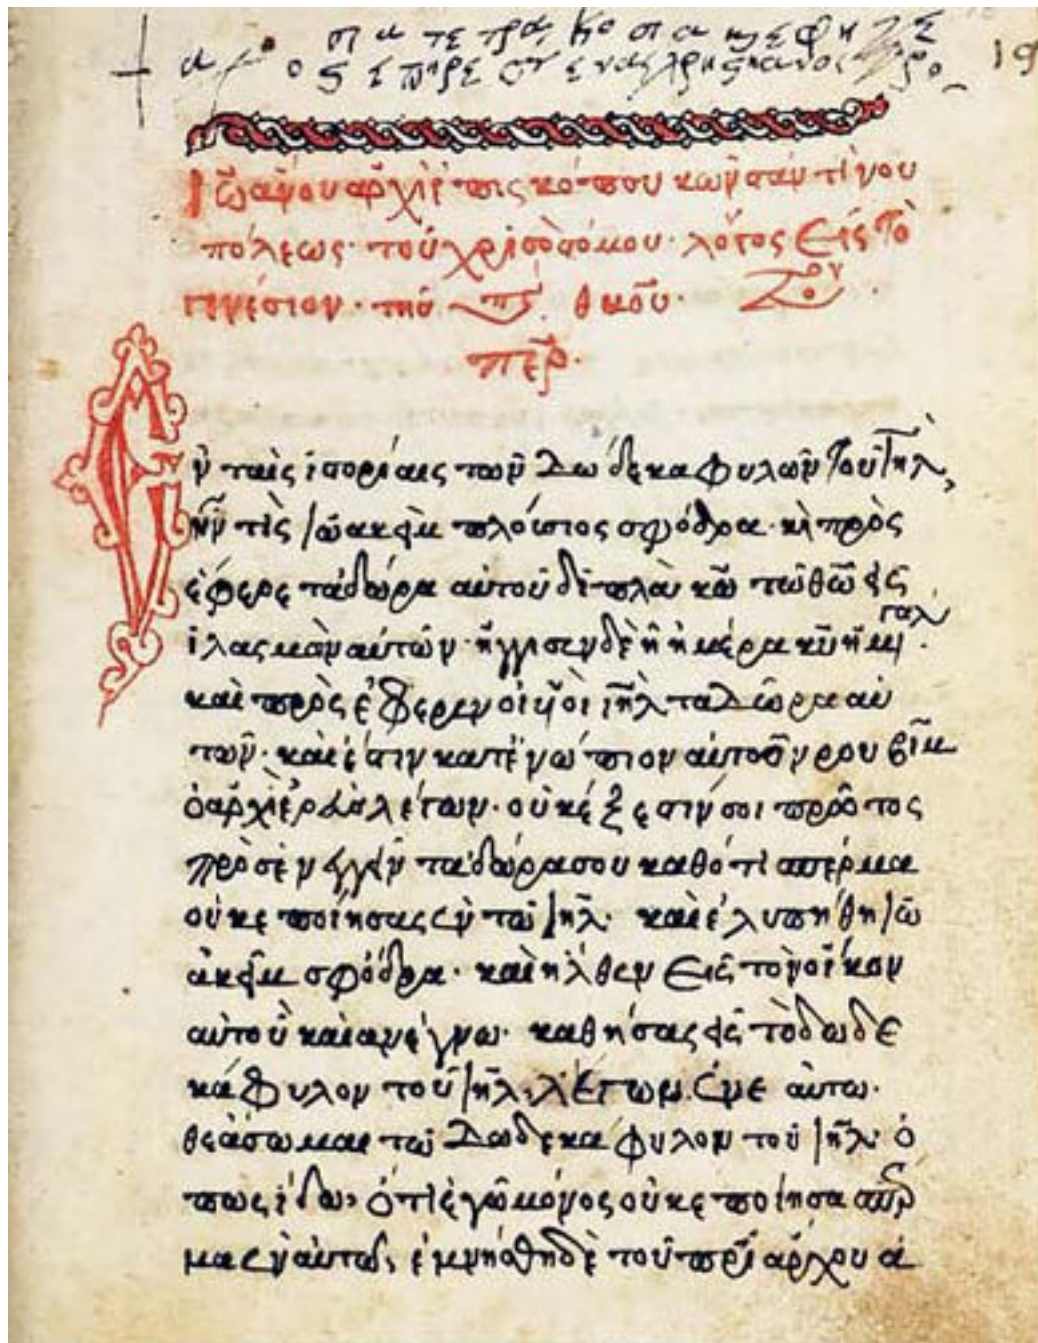 Ἰωάννου ἀρχιεπισκόπου κωνσταντίνου
πόλεως· τοῦ χρισοστόμου· λόγος εἰς τὸ
γενέσιον· τῆς θκου·
πε͂ρ·
Ἐν ταῖς ἱστορίαις τῶν δώδεκα φυλῶν τοῦ ιηλ,
ἦν τὶς ἰωακεὶμ πλοίσιος σφόδρα· κὶ πρὸς
έφερε τὰ δώρα αὐτοῦ διπλὰ κω τῶ θω εἰς
ἱλασμὸν αὐτῶν· ἤγγισεν δὲ ἡ ἡμέρα κυ ἡ μεγαλ·
καὶ πρὸς έφερεν οἱ υἱοὶ ιηλ τὰ δῶρα αὐ
τῶν· καὶ έστιν κατενώπιον αὐτοῦν ρουβὶμ
ὁ ἀρχιερεὺς λέγων· οὐκ έξεστίν σοι πρῶτος
πρὸσένεγγεῖν τὰ δώρα σου καθότι σπέρμα
οὐκ εποίησας ἐν τῶ ιηλ· καὶ ἐλυπήθη ἰω
ἀκεὶμ σφόδρα· καὶ ἦλθεν εἰς τὸν οἶκον
αὐτοῦ καὶ ανέγνω· καθήσας εἰς τὸ δωδε
κάφυλον τοῦ ιηλ· λέγων· ἐνε αὐτω·
θεάσωμαι τῶ δωδεκάφυλον τοῦ ιηλ· ὅ
πως ἴδω, ὅτι ἐγὼ μόνος οὐκ εποίησα σπερ
μα ἐν αὐτῶ, ἐμνήσθη δὲ τοῦ πατριάρχου ἀ